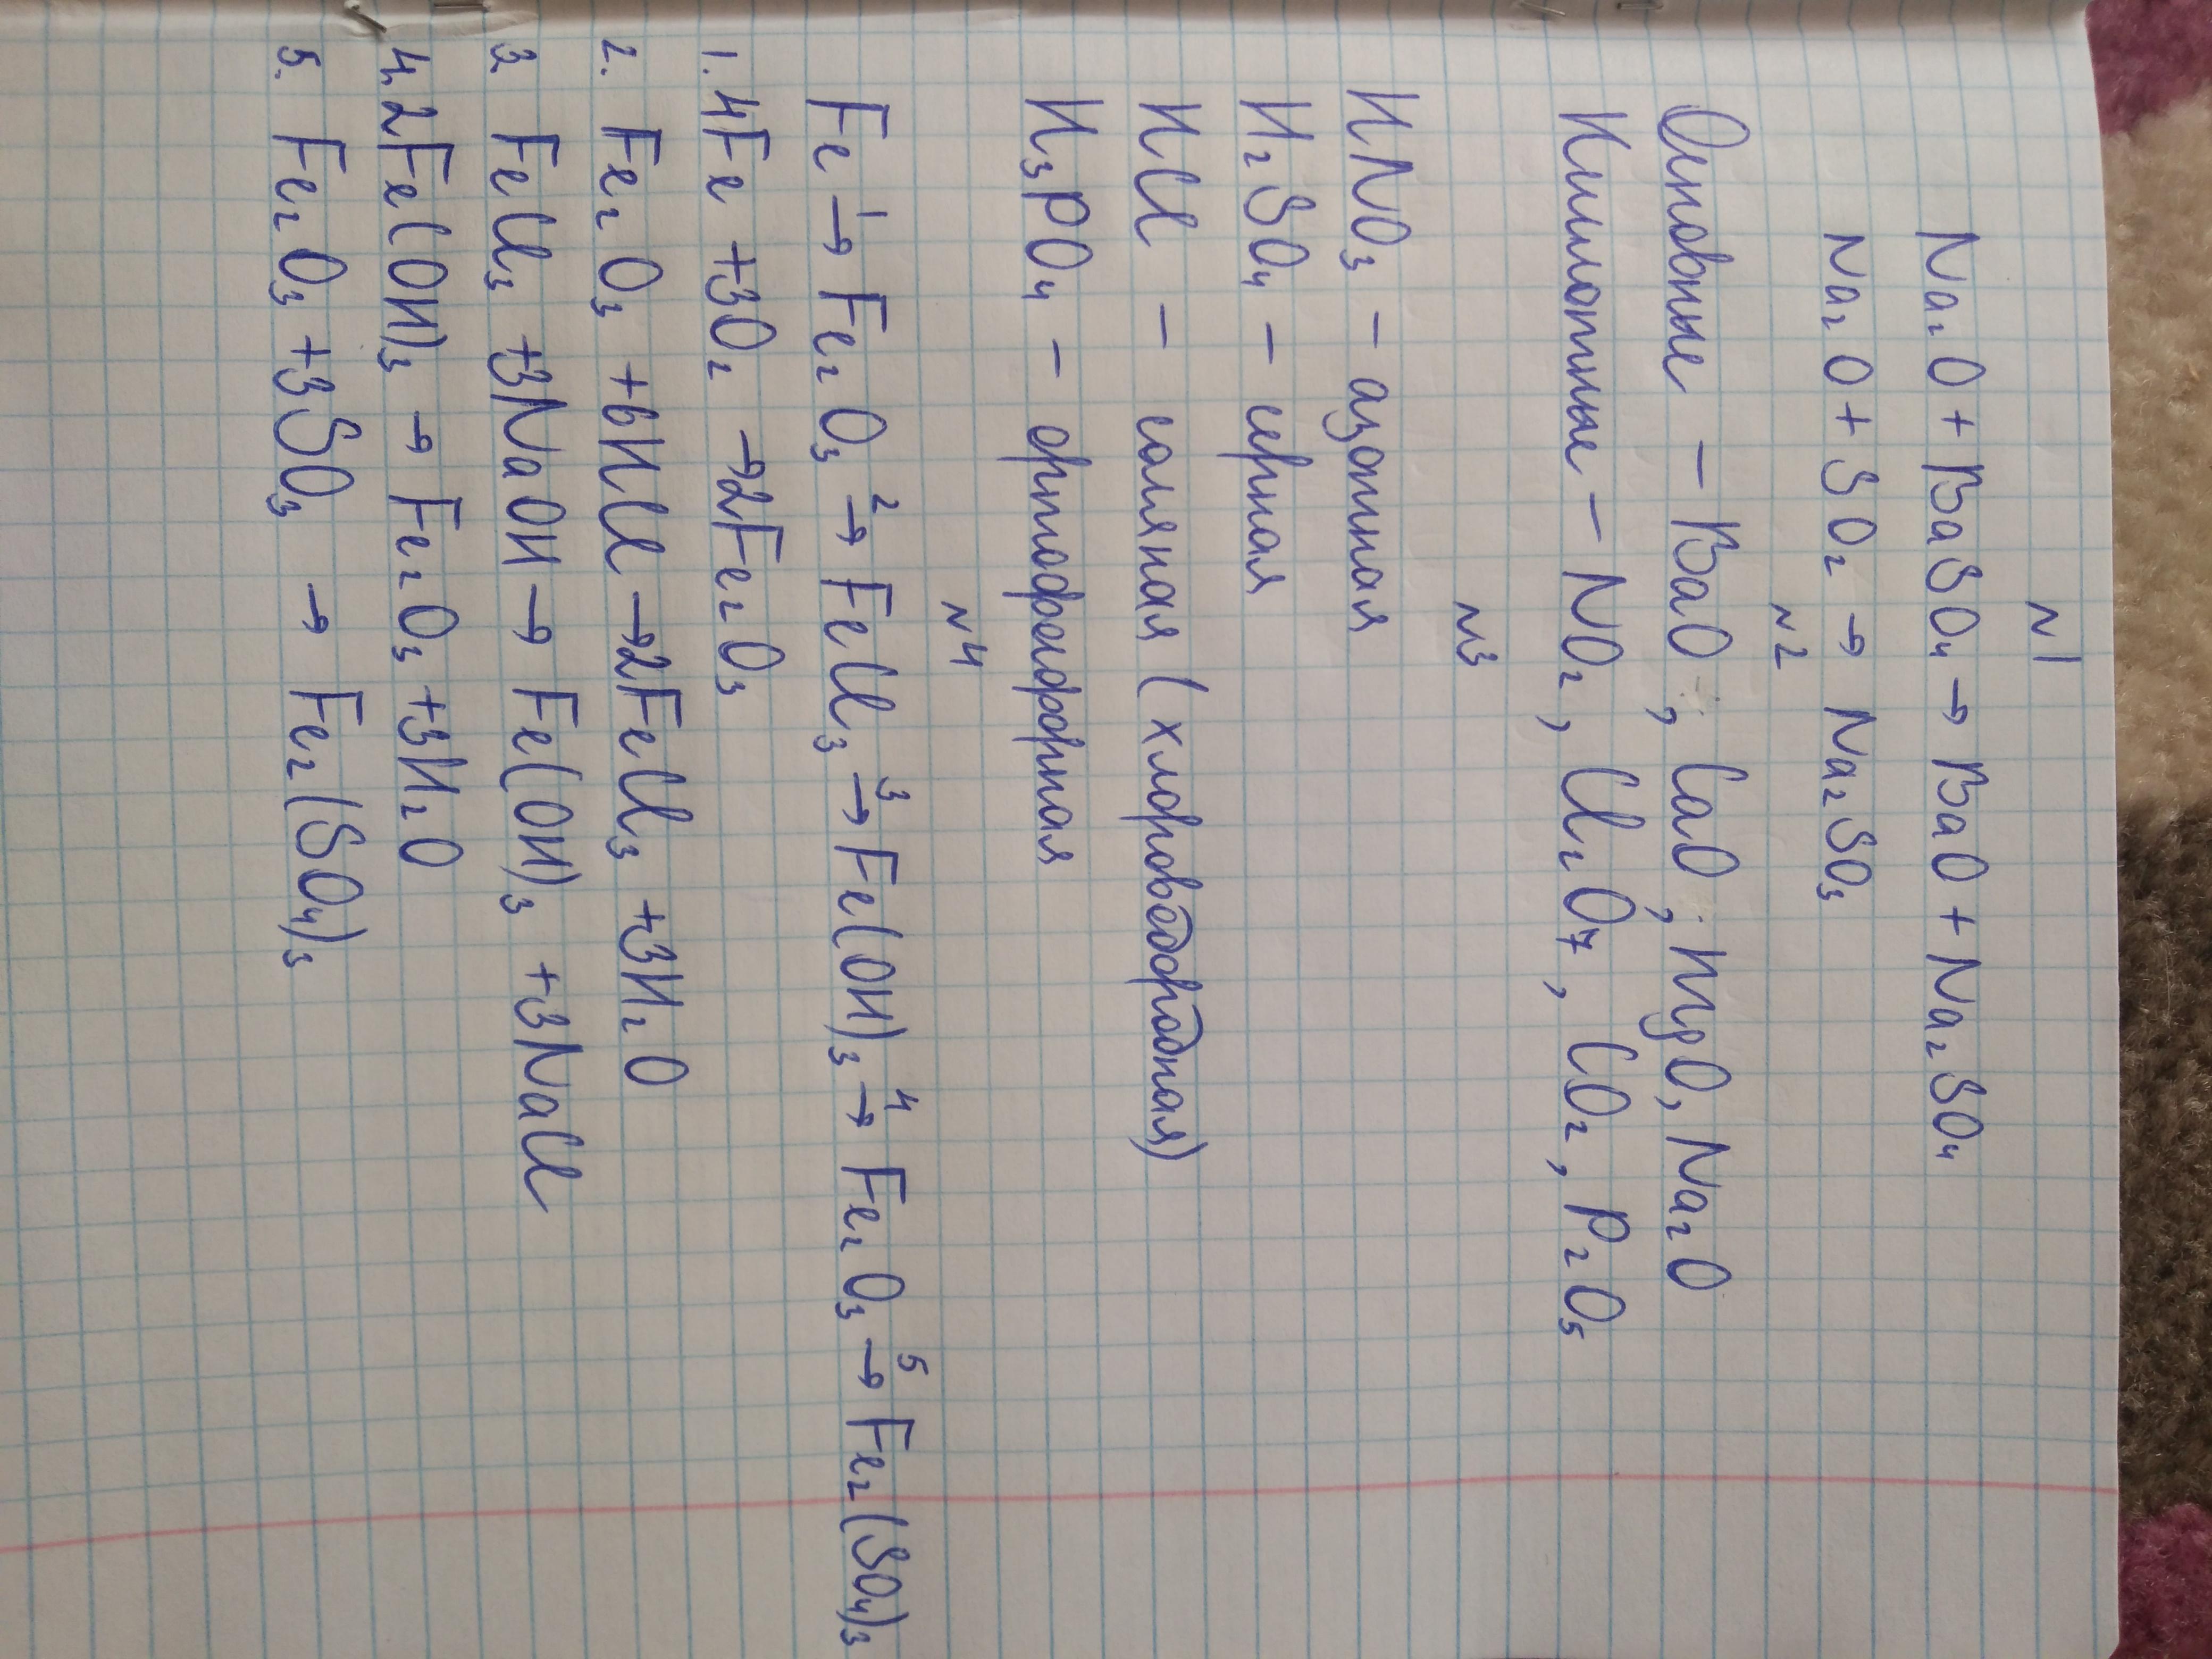 N1
Na₂O + BaSO₄ → BaO + Na₂SO₄
Na₂O + SO₂ → Na₂SO₃
N2
Основные – BaO, CaO, MgO, Na₂O
Кислотные – NO₂, Cl₂O₇, CO₂, P₂O₅
N3
HNO₃ – азотная
H₂SO₄ – серная
HCl – соляная (хлороводородная)
H₃PO₄ – ортофосфорная
N4
Fe →¹ Fe₂O₃ →² FeCl₃ →³ Fe(OH)₃ →⁴ Fe₂O₃ →⁵ Fe₂(SO₄)₃
1. 4Fe + 3O₂ → 2Fe₂O₃
2. Fe₂O₃ + 6HCl → 2FeCl₃ + 3H₂O
3 FeCl₃ + 3NaOH → Fe(OH)₃ + 3NaCl
4. 2Fe(OH)₃ → Fe₂O₃ + 3H₂O
5. Fe₂O₃ + 3SO₃ → Fe₂(SO₄)₃